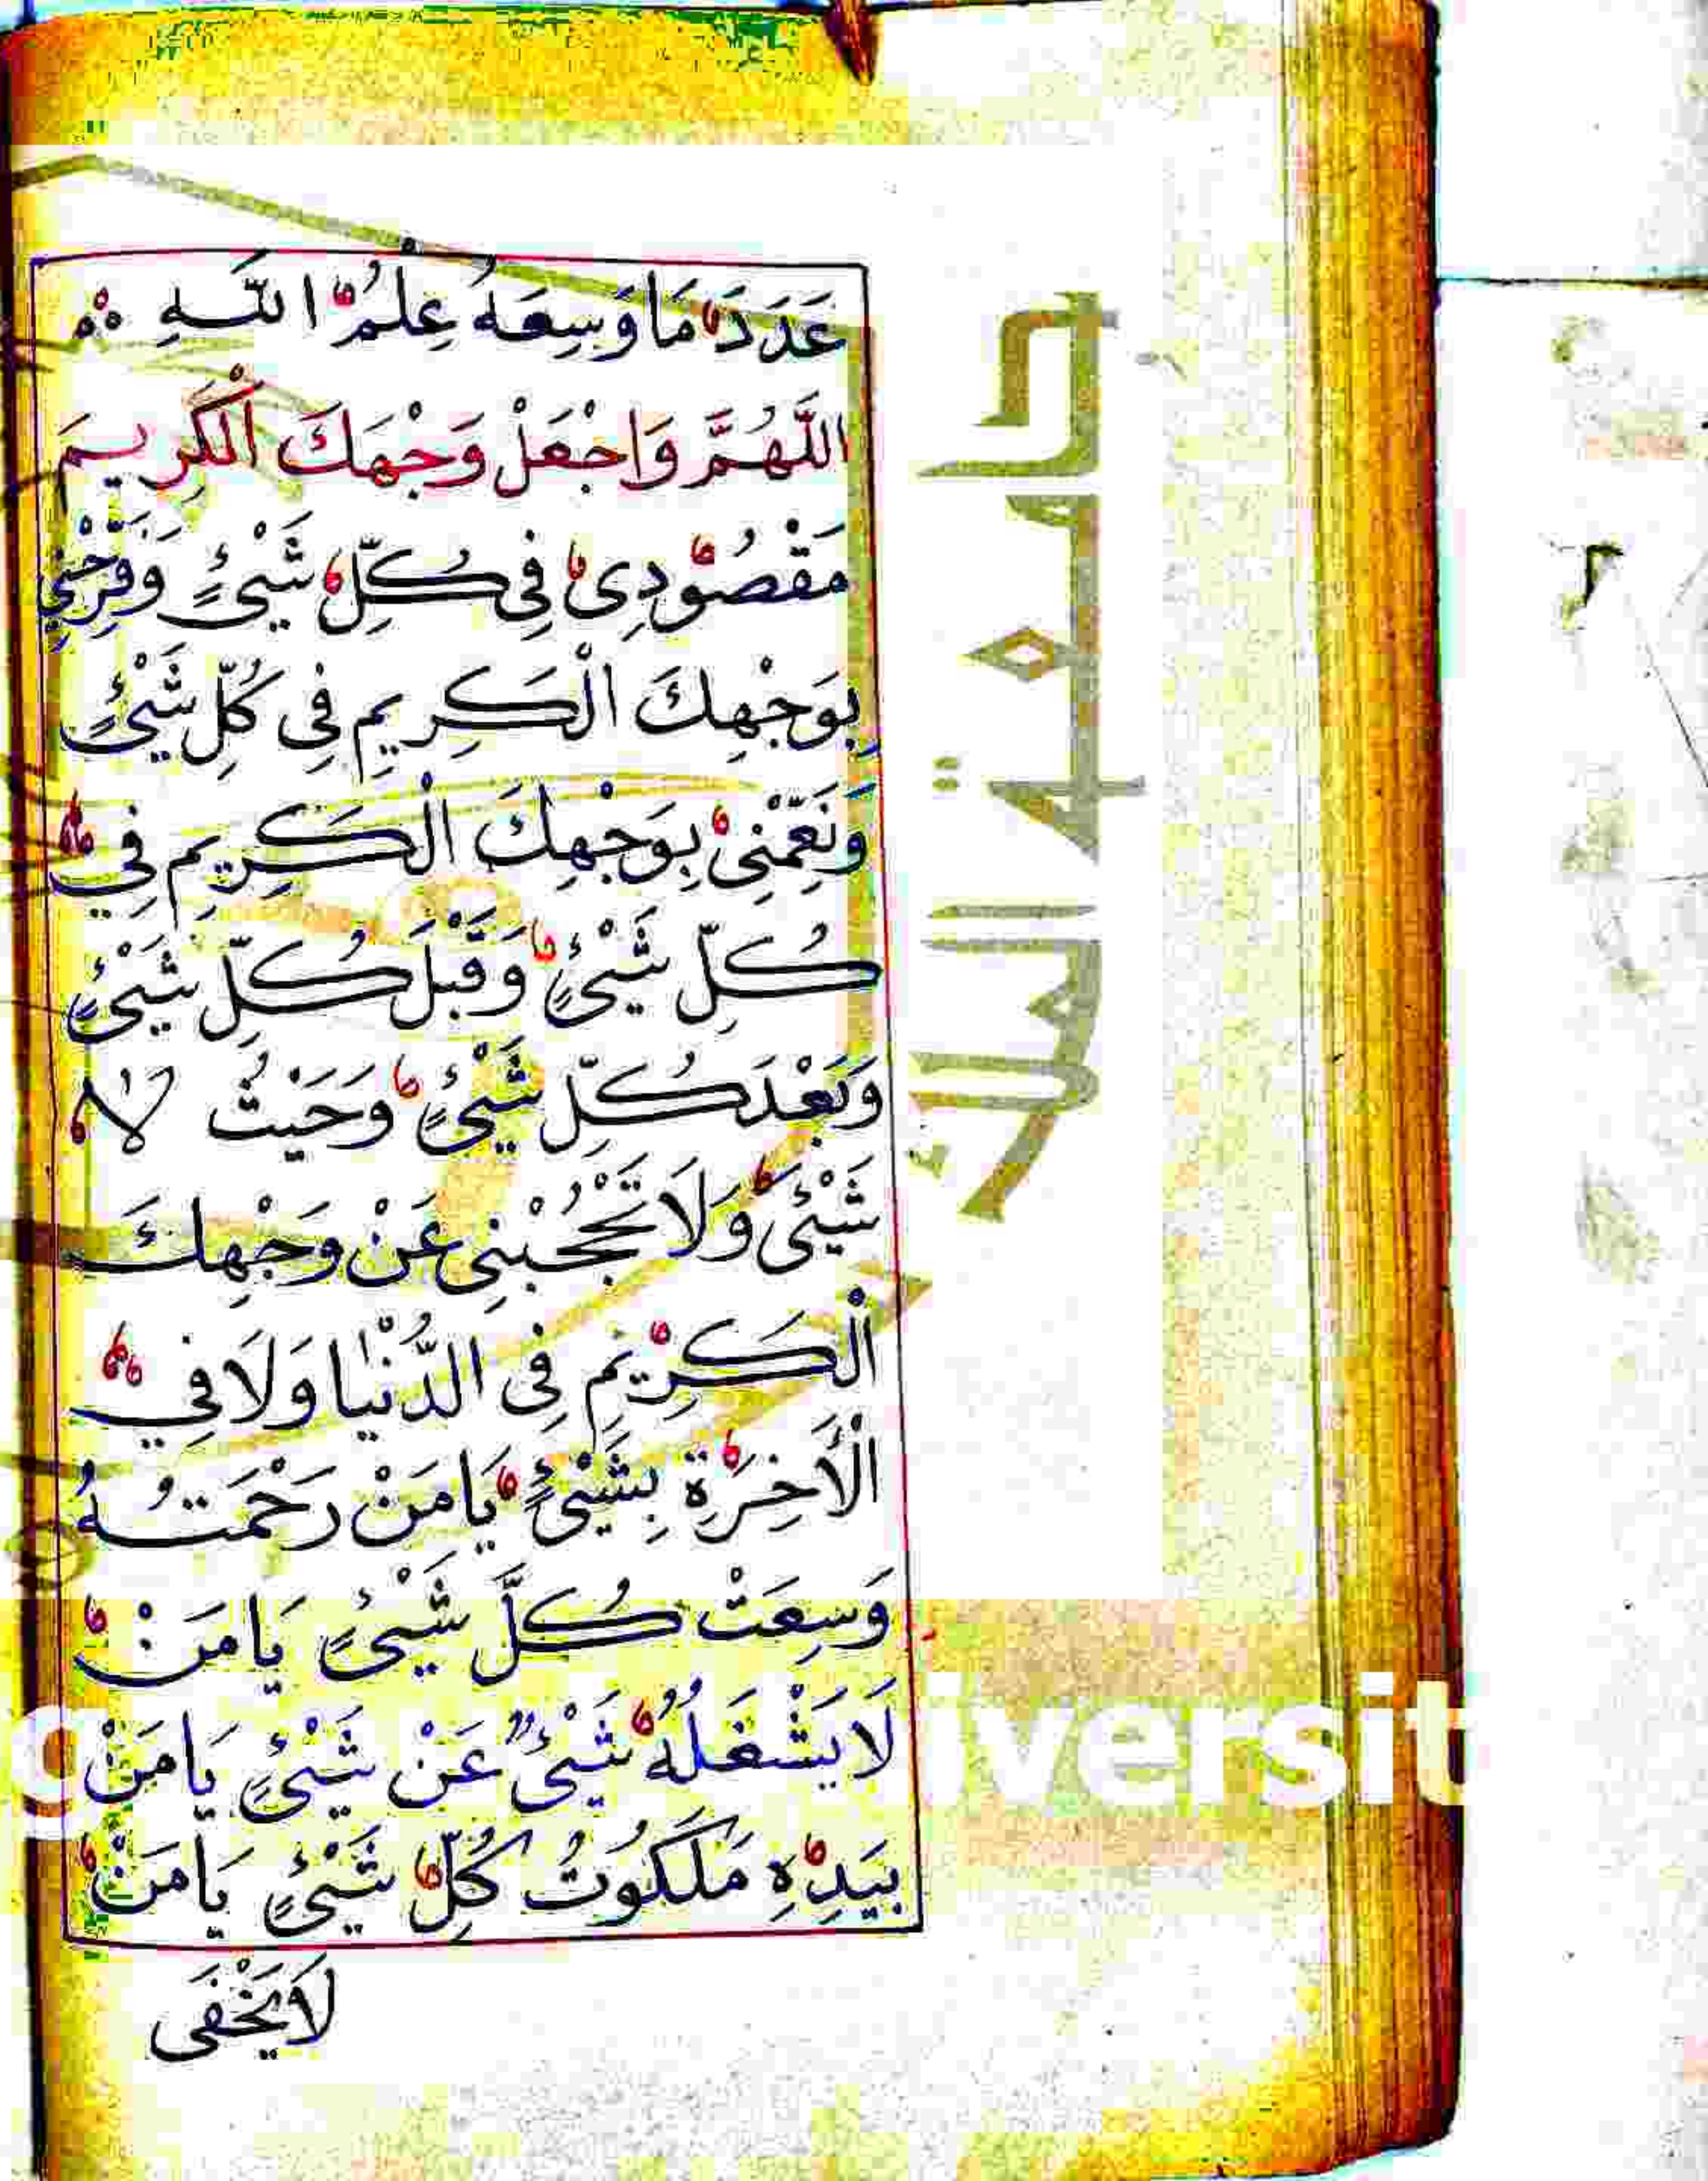 عَدَدَ مَا وَسِعَهُ عِلْمُ اللَّهِ
اللَّهُمَّ وَاجْعَلْ وَجْهَكَ الْكَرِيمَ
مَقْصُودِى فِى كُلِّ شَيْئٍ وَفَرِّحْنِي
بِوَجْهِكَ الْكَرِيمِ فِى كُلِّ شَيْئٍ
وَنَعِّمْنِى بِوَجْهِكَ الْكَرِيمِ فِي
كُلِّ شَيْئٍ وَقَبْلَ كُلِّ شَيْئٍ
وَبَعْدَ كُلِّ شَيْئٍ وَحَيْثُ لَا
شَيْئَ وَلَا تَحْجُبْنِى عَنْ وَجْهِكَ
الْكَرِيْمِ فِى الدُّنْيَا وَلَا فِي
الْأَخِرَةِ بِشَيْئٍ يَا مَنْ رَحْمَتُهُ
وَسِعَتْ كُلَّ شَيْئٍ يَا مَنْ
لَا يَشْغَلُهُ شَيْئٌ عَنْ شَيْئٍ يَا مَنْ
بِيَدِهِ مَلَكُوتُ كُلِّ شَيْئٍ يَا مَنْ
لَا يَخْفَى
جامعة الملك
iversit